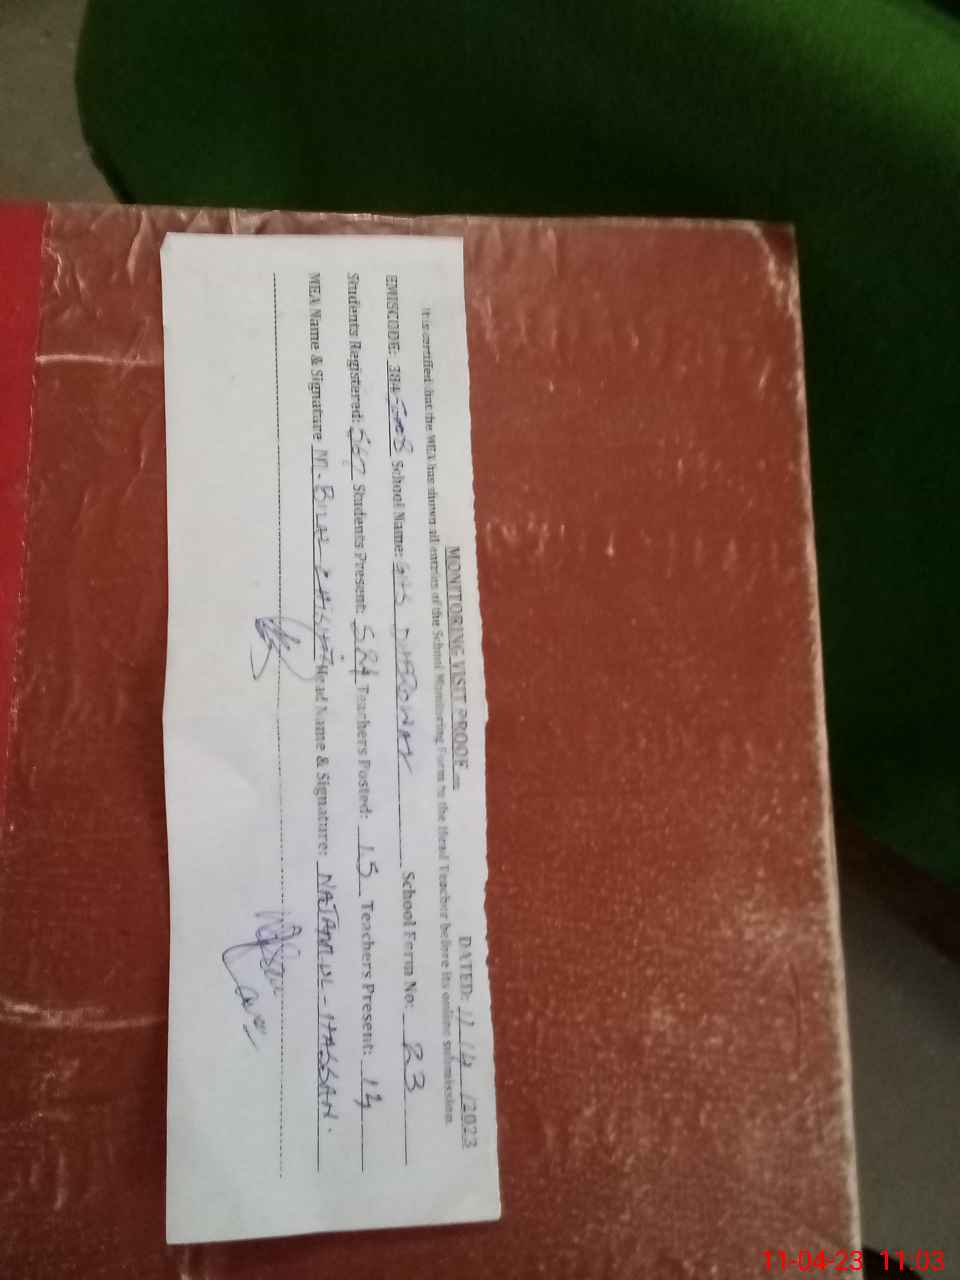 MONITORING VISIT PROOF
DATED: 11/4/2023
It is certified that the MEA has shown all entries of the School Monitoring Form to the Head Teacher before its online submission.
EMISCODE: 384 School Name: School Form No: 23
Students Registered: 567 Students Present: 524 Teachers Posted: 15 Teachers Present: 14
MEA Name & Signature M. BILAL Head Name & Signature: NAJAM UL-HASSAN.
11-04-23 11:03